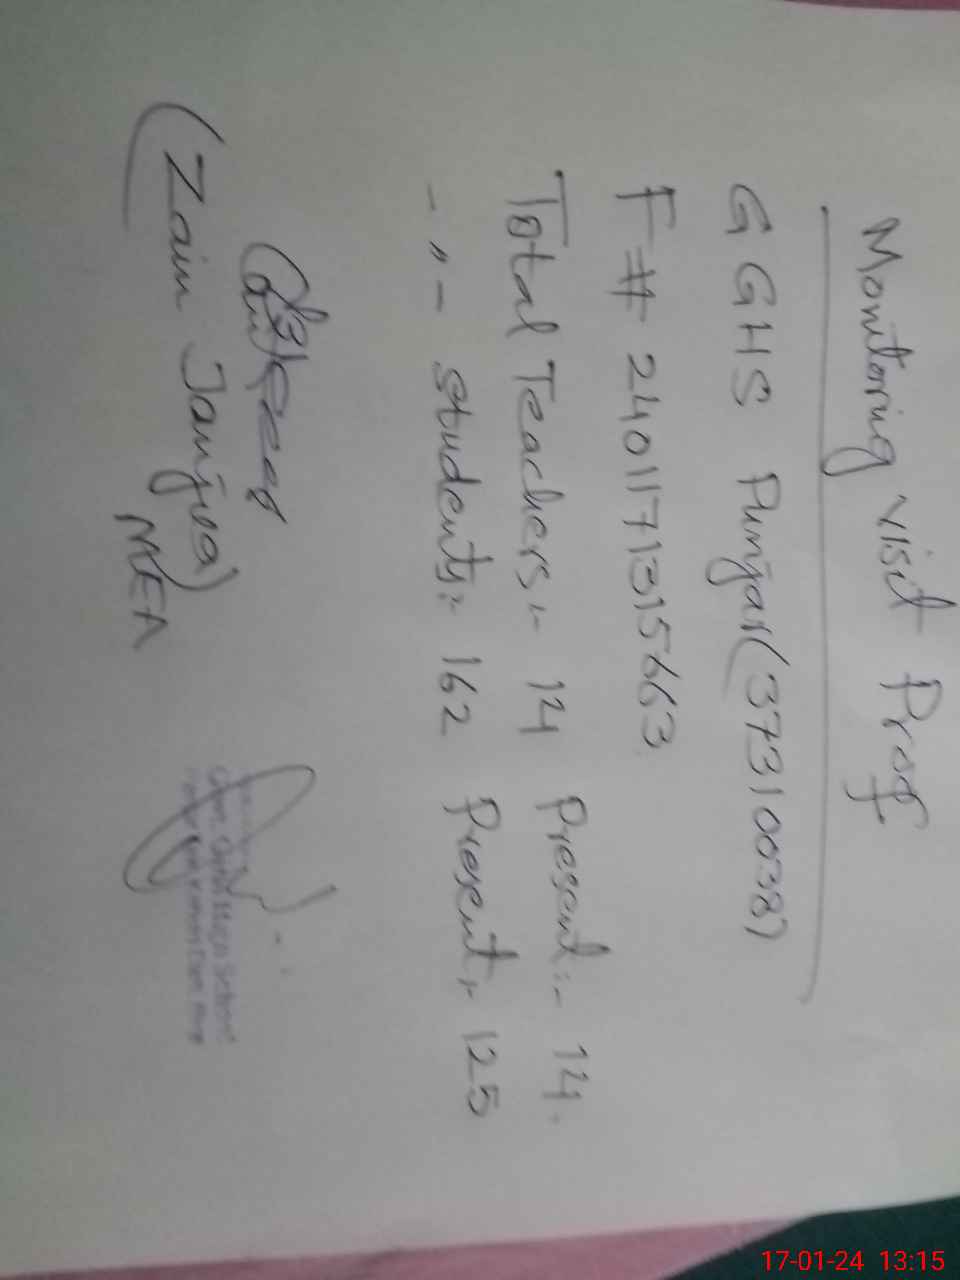 Monitoring visit Proof
GGHS Punjar (37310038)
F# 2401171315663
Total Teachers:- 14 Present:- 14.
- " - Students:- 162 Present:- 125
(Zain Janjua)
MEA
Govt. Girls High School
17-01-24 13:15